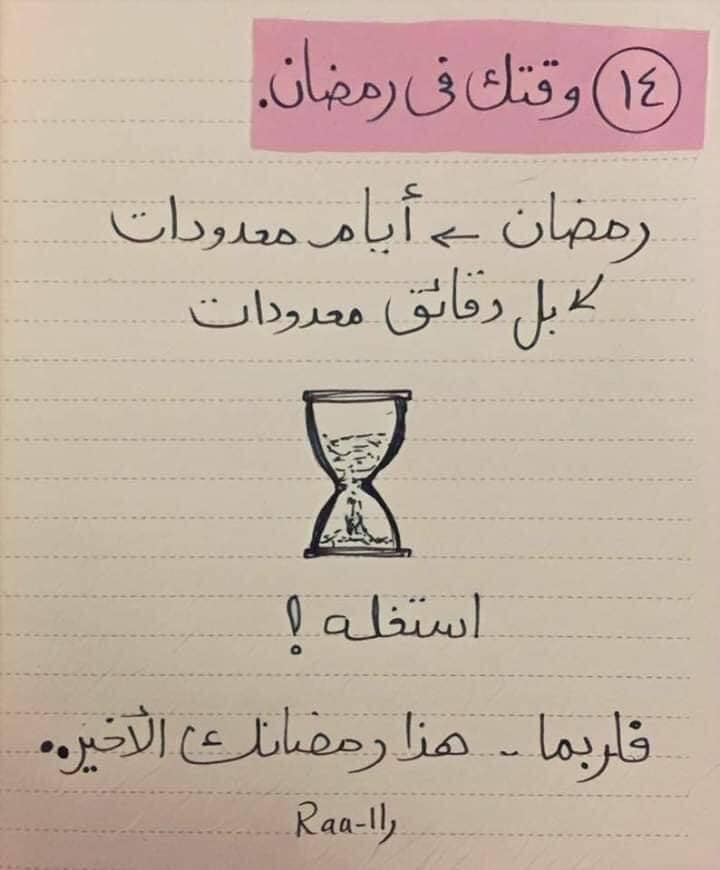 ١٤ وقتك فى رمضان.
رمضان ← أيام معدودات
↙ بل دقائق معدودات
استغله !
فلربما .. هذا رمضانك الأخير..
Raa-اار